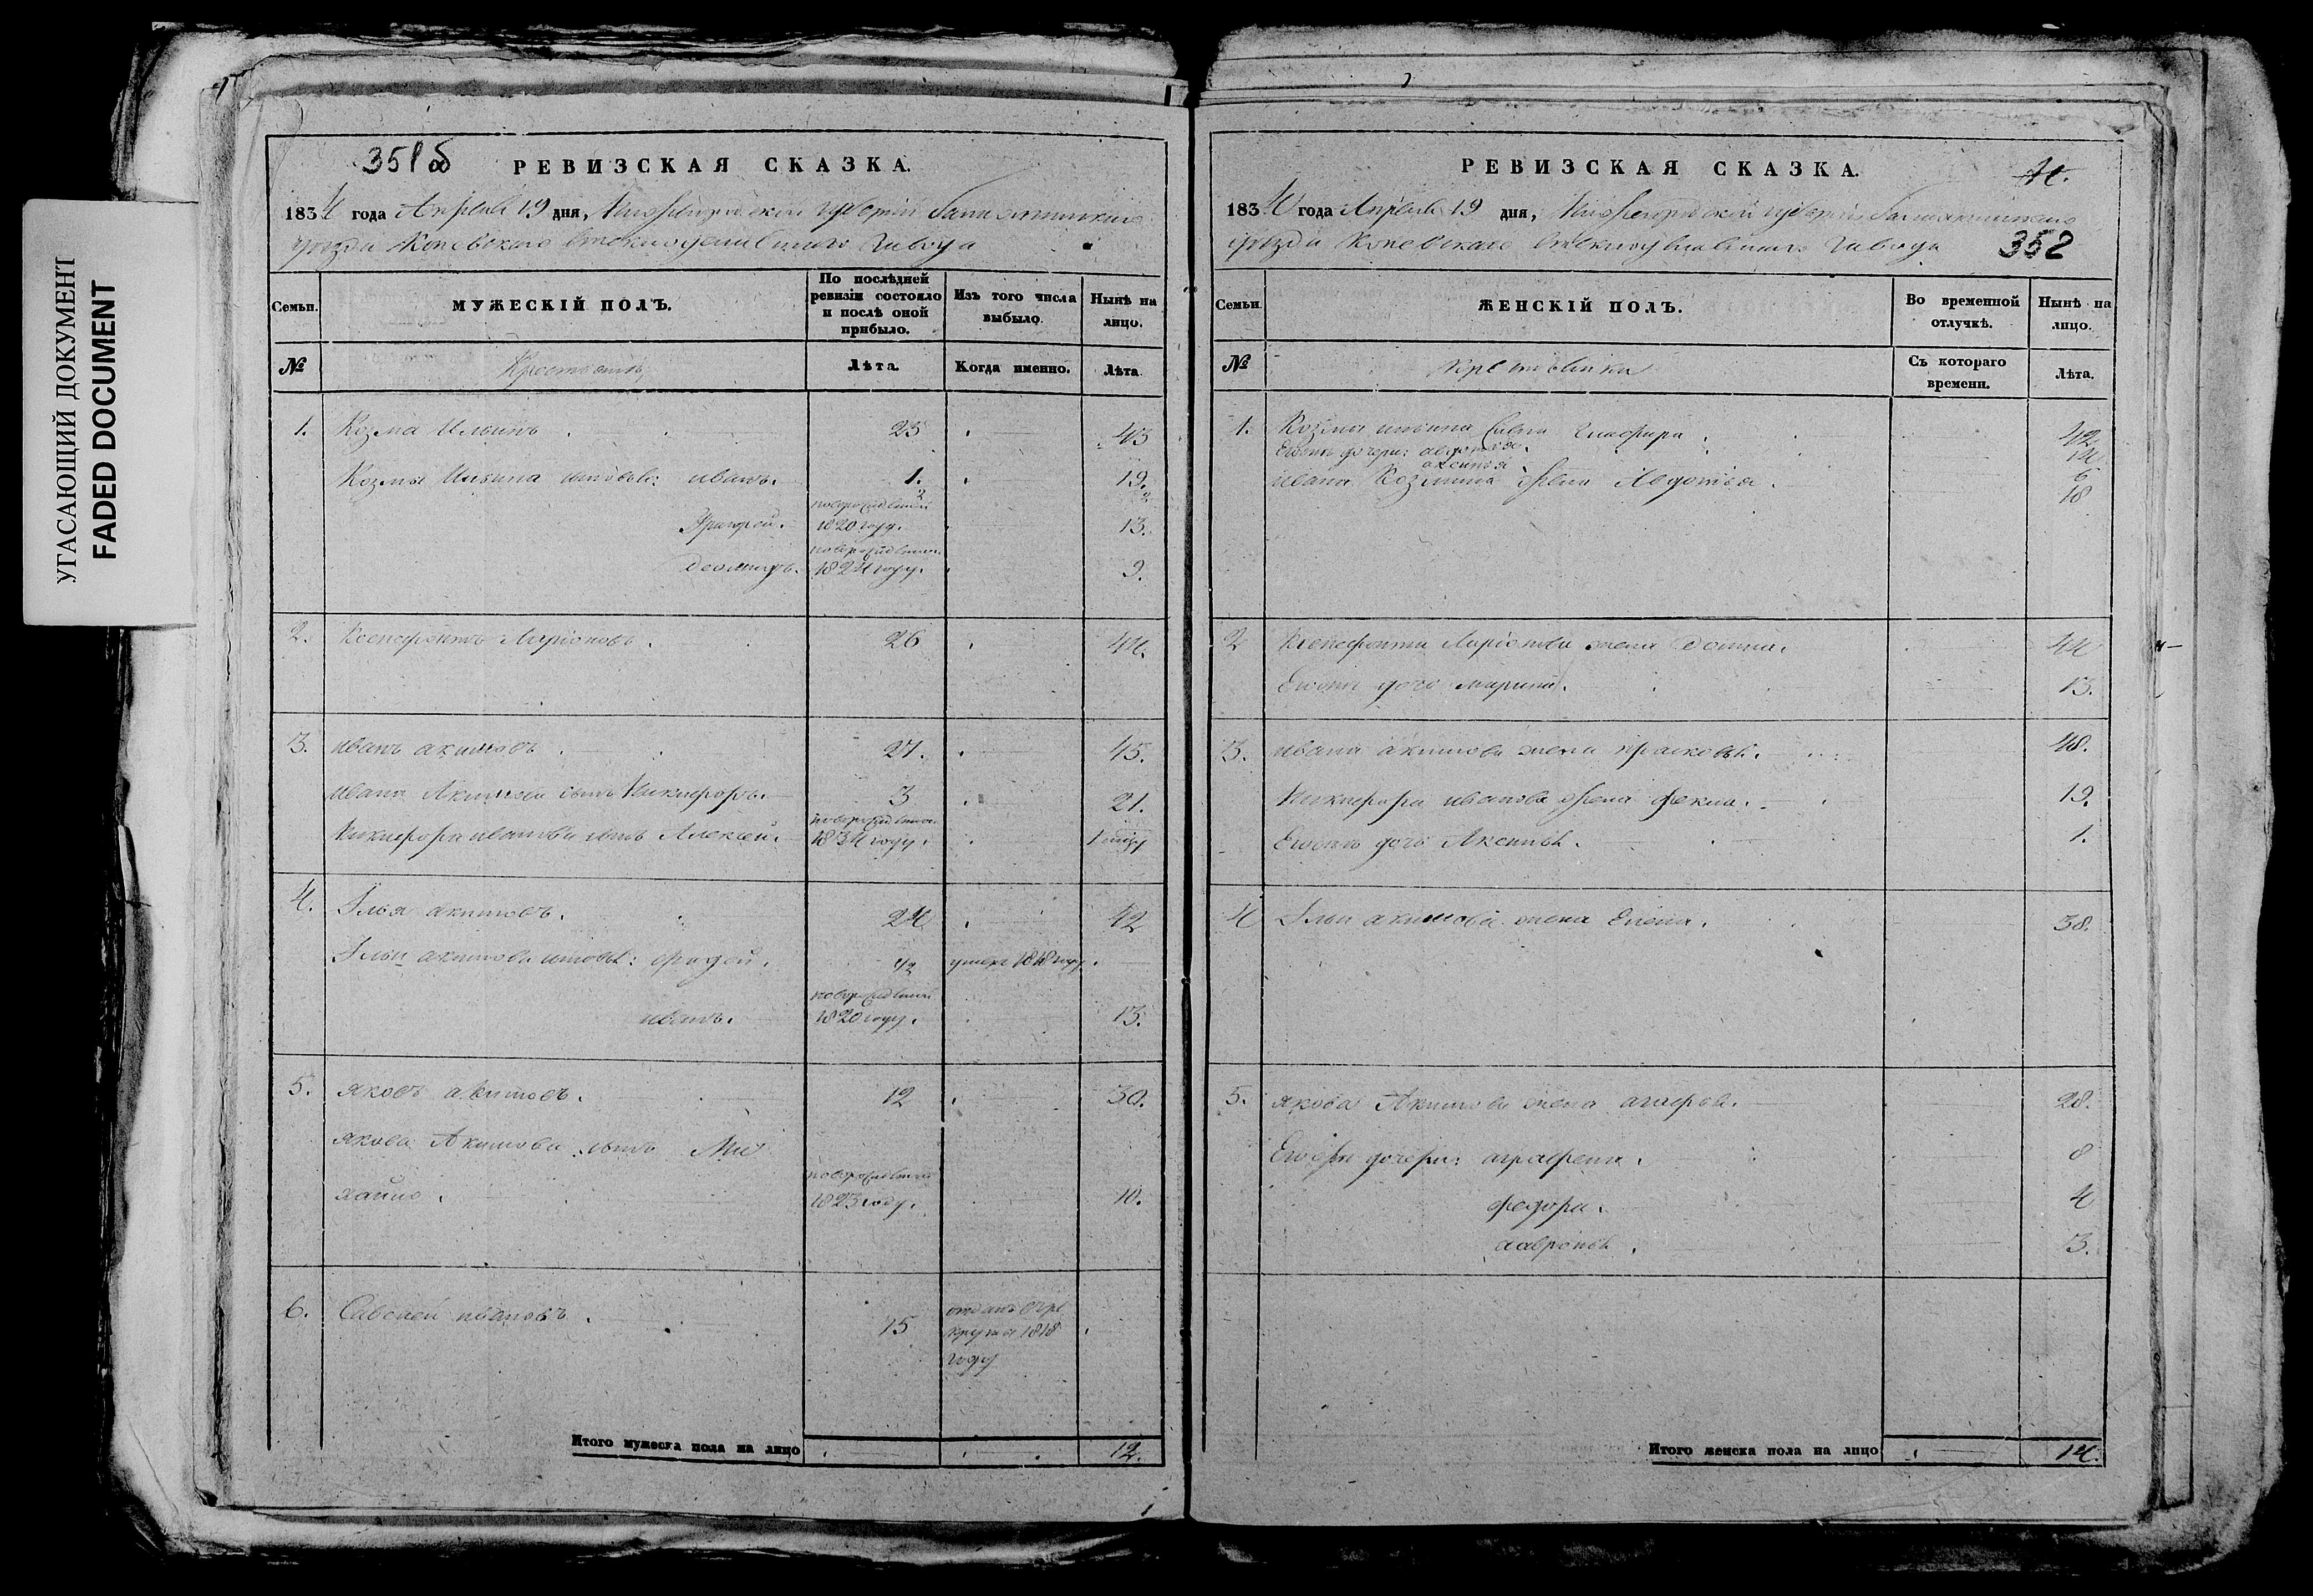 УГАСАЮЩИЙ ДОКУМЕНТ
FADED DOCUMENT
351 об
РЕВИЗСКАЯ СКАЗКА.
1834 года Апреля 19 дня, Нижегородской губернии
уезда стеклоделательного завода
Семьи.
МУЖЕСКІЙ ПОЛЪ.
По послѣдней ревизіи состояло и послѣ оной прибыло.
Изъ того числа выбыло.
Нынѣ на лицо.
№
Крестьяне
Лѣта.
Когда именно.
Лѣта.
1. Козма Ильинъ. 25 43
Козмы Ильина сыновья: иванъ. 1. 19.
новорожденной 2 2
Григорей. 1820 году. 13.
новорожденной
1824 году. 9.
2. Ксенофонтъ Ларіоновъ. 26 44.
3. иванъ акимовъ. 27. 45.
ивана Акимова сынъ Никифоръ. 3 21.
новорожденной
Никифора иванова сынъ Алексей. 1834 году.
4. Илья акимовъ. 24 42
Ильи акимова сыновья: 1/2 умеръ 1818 году.
новорожденной
иванъ. 1820 году. 13.
5. яковъ акимовъ. 12 30.
якова Акимова сынъ Ми
новорожденной
хайло. 1823 году. 10.
6. Савелей ивановъ. 15 отданъ въ ре
круты 1818
году
Итого мужеска пола на лицо 12.
РЕВИЗСКАЯ СКАЗКА.
1834 года Апреля 19 дня, Нижегородской губернии
уезда стеклоделательного завода
352
Семьи.
ЖЕНСКІЙ ПОЛЪ.
Во временной отлучкѣ.
Нынѣ на лицо.
№
Крестьянки
Съ котораго времени.
Лѣта.
1. Козмы ильина жена Глафира. 42
Егожъ дочери: авдотья. 14
аксинья 6
ивана Козмина жена Авдотья. 18
2 Ксенофонта Ларіонова жена Домна. 44
Егожъ дочь марина. 13.
3. ивана акимова жена прасковья. 48.
Никифора иванова жена фекла. 19.
Егожъ дочь Аксинья. 1.
4 Ильи акимова жена Елена. 38.
5. якова Акимова жена 28.
Егожъ дочери: аграфена. 8
федора. 4
3.
Итого женска пола на лицо 14.